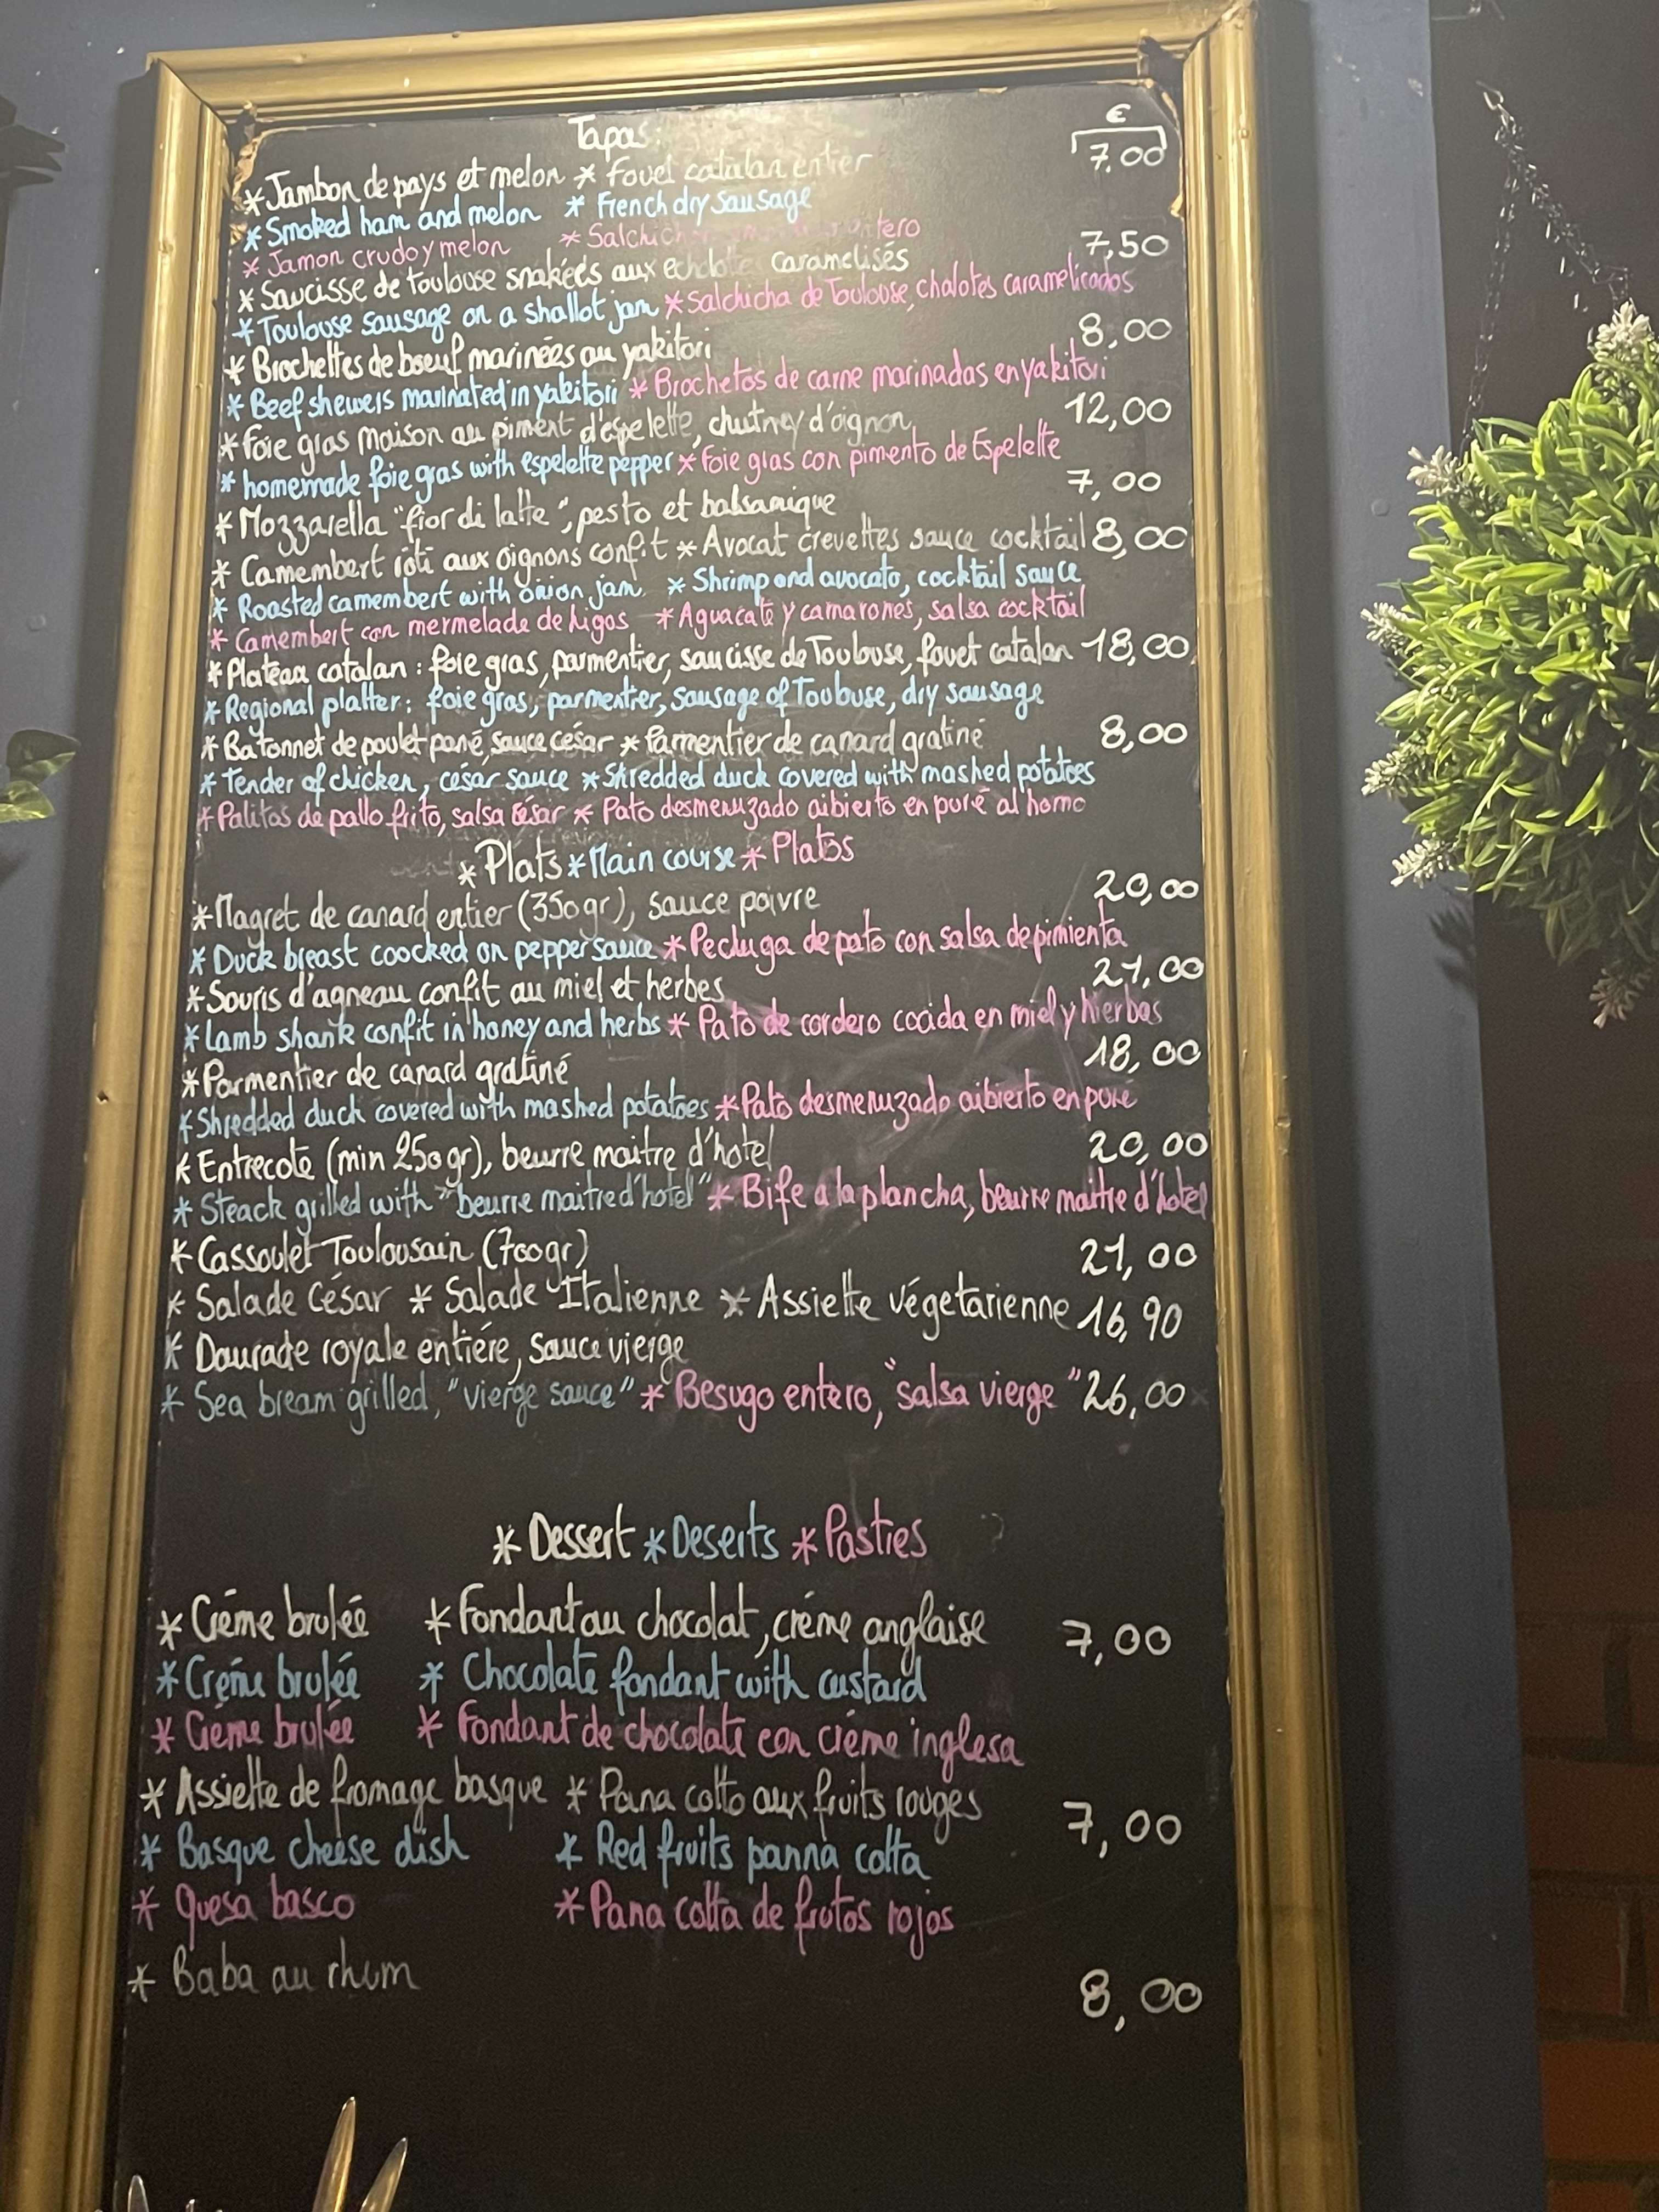 Tapas: €
* Jambon de pays et melon * Fouet catalan entier 7,00
* Smoked ham and melon * French dry sausage
* Jamon crudo y melon * entero
* Saucisse de toulouse snakées aux echalotes caramelisés 7,50
* Toulouse sausage on a shallot jam * Salchicha de Toulouse, chalotes caramelicados
* Brochettes de boeuf marinées au yakitori 8,00
* Beef shewers marinated in yakitori * Brochetas de carne marinadas en yakitori
* Foie gras maison au piment d'espelette, chutney d'oignon 12,00
* homemade foie gras with espelette pepper * Foie gras con pimento de Espelette
* Mozzarella "fior di latte", pesto et balsamique 7,00
* Camembert roti aux oignons confit * Avocat crevettes sauce cocktail 8,00
* Roasted camembert with onion jam * Shrimp and avocato, cocktail sauce
* Camembert con mermelade de higos * Aguacate y camarones, salsa cocktail
* Plateau catalan : foie gras, parmentier, saucisse de Toulouse, fouet catalan 18,00
* Regional platter : foie gras, parmentier, sausage of Toulouse, dry sausage
* Batonnet de poulet pané, sauce césar * Parmentier de canard gratiné 8,00
* Tender of chicken, césar sauce * Shredded duck covered with mashed potatoes
* Palitos de pallo frito, salsa césar * Pato desmenuzado aibierto en puré al horno
* Plats * Main course * Platos
* Magret de canard entier (350gr), sauce poivre 20,00
* Duck breast coocked on pepper sauce * Pechuga de pato con salsa de pimienta
* Souris d'agneau confit au miel et herbes 21,00
* Lamb shank confit in honey and herbs * Pato de cordero cocida en miel y hierbas
* Parmentier de canard gratiné 18,00
* Shredded duck covered with mashed potatoes * Pato desmenuzado aibierto en puré
* Entrecote (min 250gr), beurre maitre d'hotel 20,00
* Steack grilled with "beurre maitre d'hotel" * Bife a la plancha, beurre maitre d'hotel
* Cassoulet Toulousain (700gr) 21,00
* Salade César * Salade Italienne * Assiette végetarienne 16,90
* Daurade royale entiére, sauce vierge
* Sea bream grilled, "vierge sauce" * Besugo entero, "salsa vierge" 26,00
* Dessert * Deserts * Pasties
* Créme brulée * Fondant au chocolat, créme anglaise 7,00
* Créme brulée * Chocolate fondant with custard
* Créme brulée * Fondant de chocolate con créme inglesa
* Assiette de fromage basque * Pana cotta aux fruits rouges 7,00
* Basque cheese dish * Red fruits panna cotta
* Quesa basco * Pana cotta de frutos rojos
* Baba au rhum 8,00